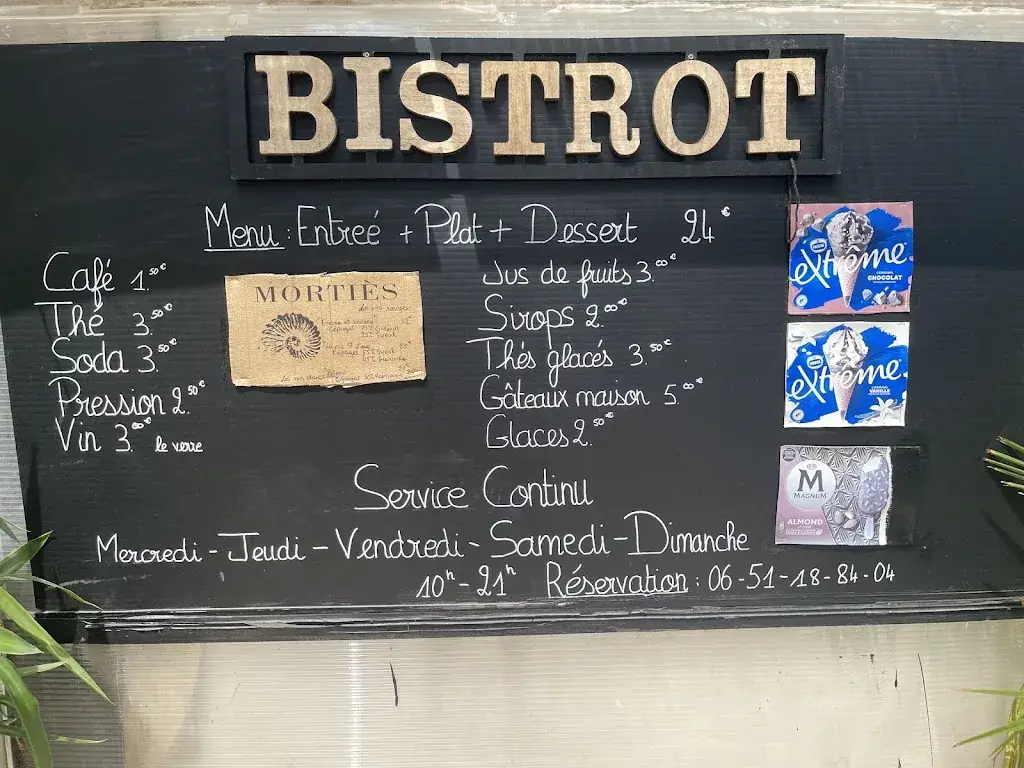 BISTROT
Menu : Entreé + Plat + Dessert 24€
Café 1.50€
Thé 3.50€
Soda 3.50€
Pression 2.50€
Vin 3.00€ le verre
MORTIÈS
Jus de fruits 3.00€
Sirops 2.00€
Thés glacés 3.50€
Gâteaux maison 5.00€
Glaces 2.50€
extrême
CHOCOLAT
extrême
VANILLE
M
MAGNUM
ALMOND
Service Continu
Mercredi - Jeudi - Vendredi - Samedi - Dimanche
10h - 21h Réservation : 06-51-18-84-04